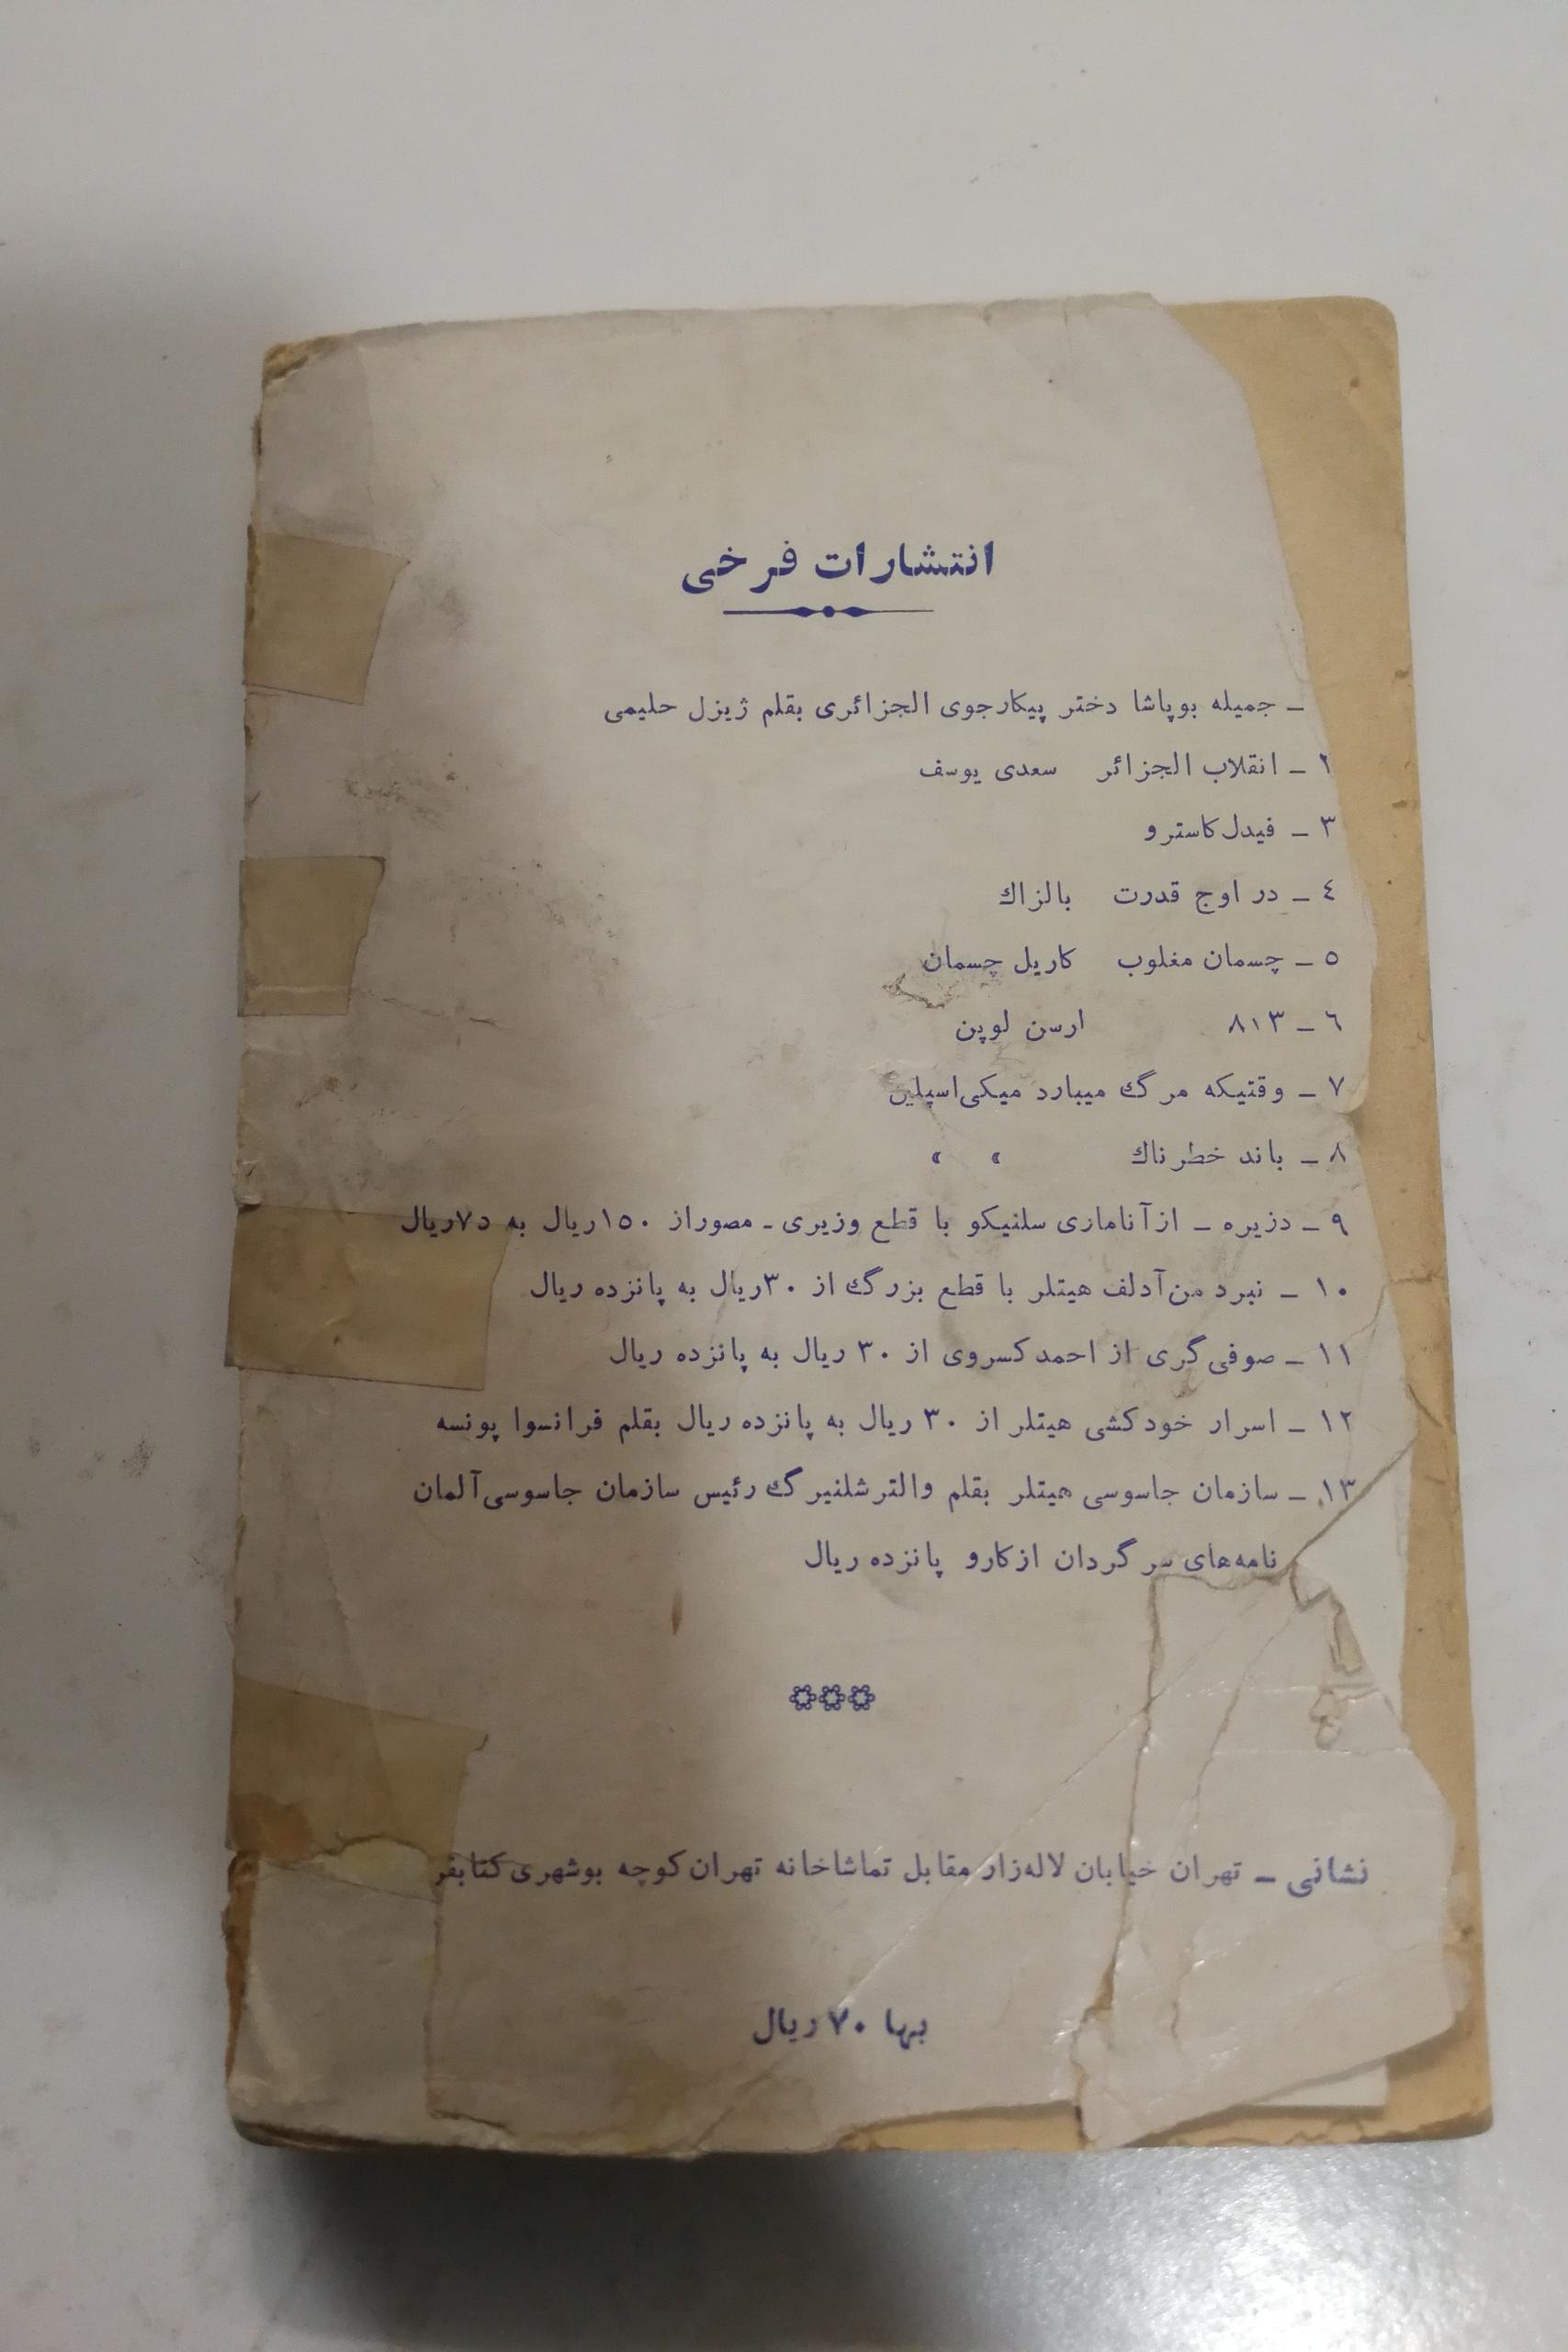 انتشارات فرخی
ـ جمیله بوپاشا دختر پیکارجوی الجزائری بقلم ژیزل حلیمی
۲ ـ انقلاب الجزائر سعدی یوسف
۳ ـ فیدل کاسترو
٤ ـ در اوج قدرت بالزاك
۵ ـ چسمان مغلوب کاریل چسمان
٦ ـ ۸۱۳ ارسن لوپن
۷ ـ وقتیکه مرگ میبارد میکی اسپلین
۸ ـ باند خطرناك » »
۹ ـ دزیره ـ از آناماری سلنیکو با قطع وزیری ـ مصور از ۱۵۰ ریال به ۷۵ ریال
۱۰ ـ نبرد من آدلف هیتلر با قطع بزرگ از ۳۰ ریال به پانزده ریال
۱۱ ـ صوفی گری از احمد کسروی از ۳۰ ریال به پانزده ریال
۱۲ ـ اسرار خودکشی هیتلر از ۳۰ ریال به پانزده ریال بقلم فرانسوا پونسه
۱۳ ـ سازمان جاسوسی هیتلر بقلم والتر شلنبرگ رئیس سازمان جاسوسی آلمان
نامه‌های سرگردان از کارو پانزده ریال
نشانی ـ تهران خیابان لاله‌زار مقابل تماشاخانه تهران کوچه بوشهری
بها ۷۰ ریال